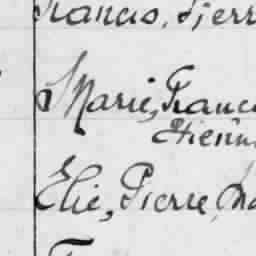 Francis, Pierr
Marie, Franc
Etienn
Elie, Pierre, Ma